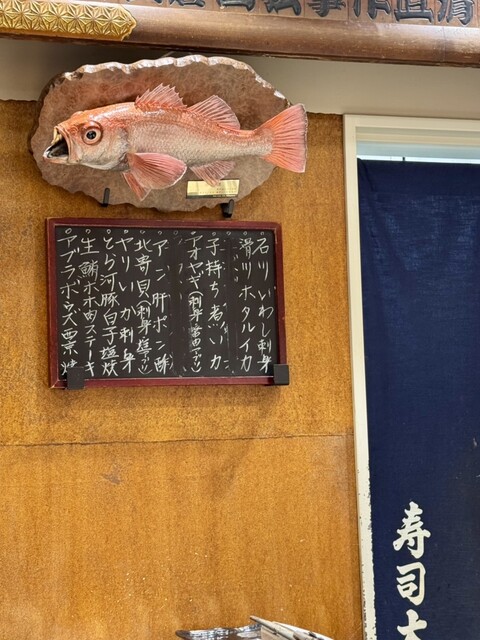 石川いわし刺身
滑川ホタルイカ
子持ち煮イカ
アオヤギ(刺身 當田ブツ)
アン肝ポン酢
北寄貝(刺身 塩ブツ)
ヤリいか刺身
とら河豚白子塩焼
生鮪ホホ肉ステーキ
アブラボウズ西京焼
寿司大